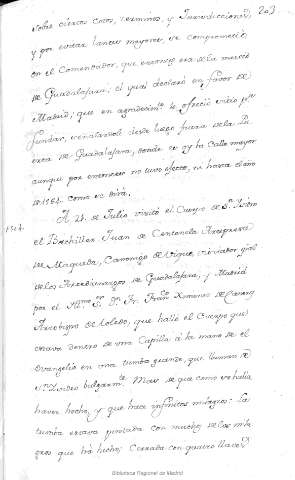 203
sobre ciertos Cotos, terminos, y Jurisdicciones
y por evitar lances mayores, se comprometió
en el Comendador, que entonces era de la merced
de Guadalajara; el qual declaró en favor de
Madrid; que en agradecim.to le ofreció sitio p.a
fundar, señalandole desde luego fuera de la Pu
erta de Guadalajara, donde es oy la Calle mayor
aunque por entonces no tuvo efecto, ni hasta el año
de 1564 como se dirá.
1504.
A 24. de Julio visitó el Cuerpo de S.n Isidro
el Bachiller Juan de Centenola Arcipreste
de Maqueda, Canonigo de Vique, visitador g.ral
de los Arcedianazgos de Guadalajara, y Madrid
por el Ill.mo S.r D.n Fr. Fran.co Ximenez de Cisneros
Arzobispo de Toledo, que halló el Cuerpo que
estava dentro de una Capilla á la mano de el
Evangelio en una tumba grande, que llaman de
S.n Isidro bulgarm.te Mas se que como se halla
haver hecho, y que hace infinitos milagros: La
tumba estava pintada con muchos de los mila
gros que há hecho; Cerrada con quatro llaves
Biblioteca Regional de Madrid